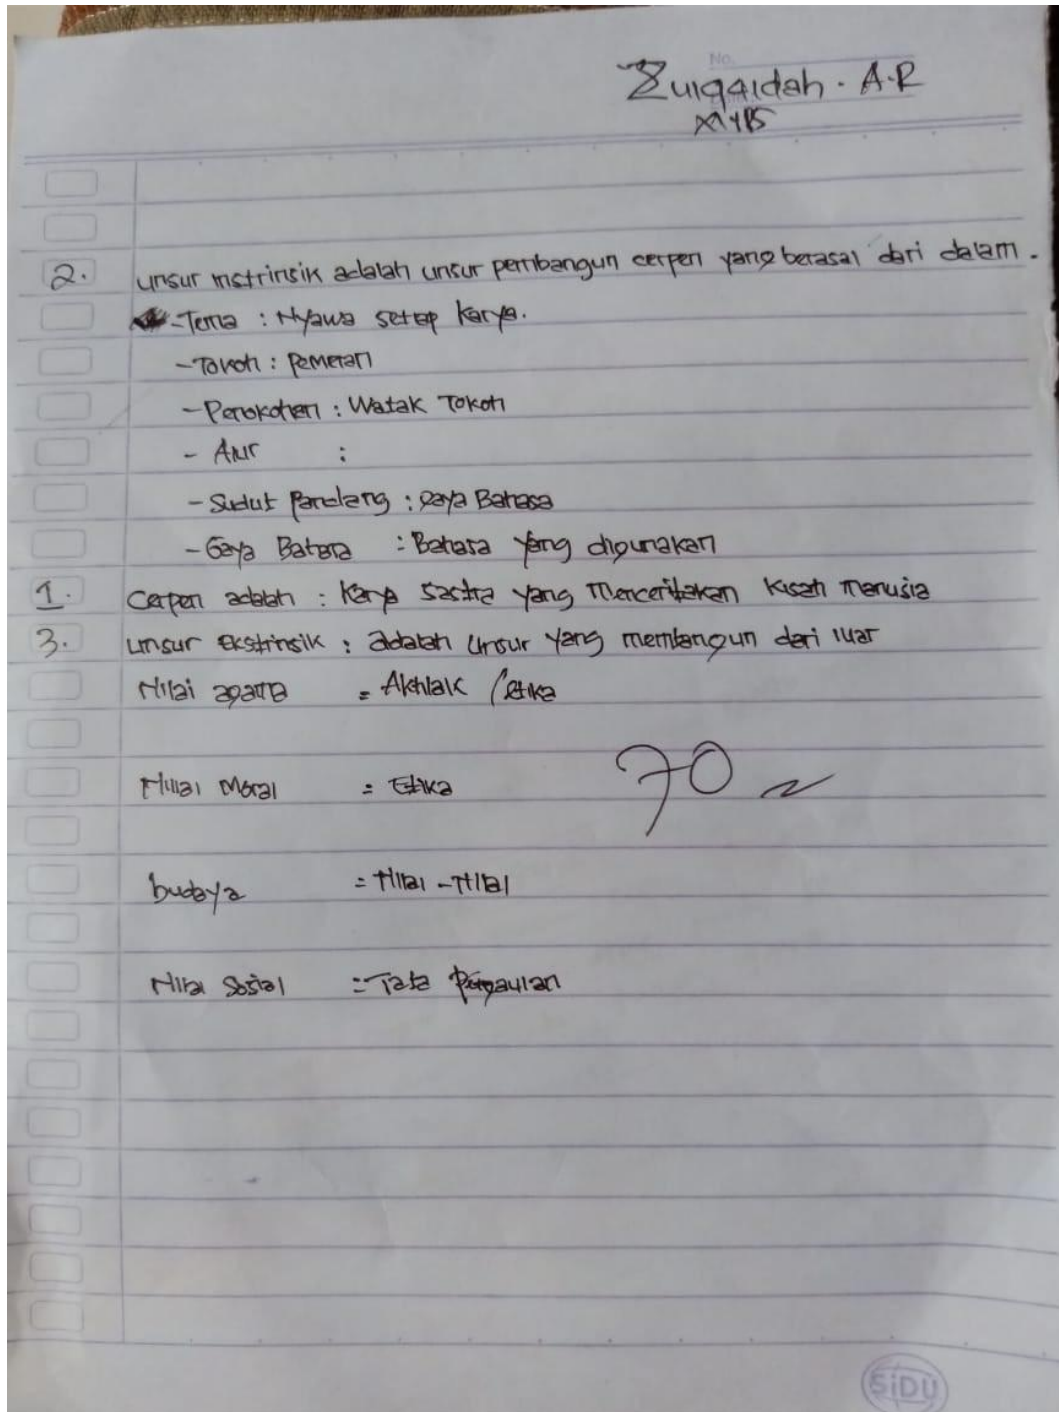 No.
Zulqaidah. A.R
2. unsur instrinsik adalah unsur pembangun cerpen yang berasal dari dalam.
-Tema : Nyawa setiap karya.
-Tokoh : Pemeran
-Penokohan : Watak Tokoh
- Alur :
-Sudut Pandang : gaya Bahasa
-Gaya Bahasa : Bahasa yang digunakan
1. Cerpen adalah : Karya sastra yang menceritakan kisah manusia
3. unsur ekstrinsik : adalah unsur yang membangun dari luar
Nilai agama = Akhlak /etika
Nilai Moral = Etika
70
budaya = Nilai -Nilai
Nilai Sosial = Tata Pergaulan
SiDU